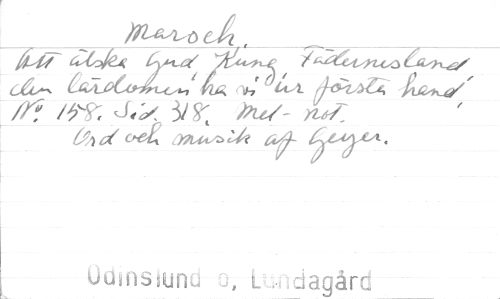 Marsch.
Att älska Gud, Kung, Fädernesland
den lärdomen ha vi ur första hand,
No. 158. Sid. 318. Mel-not.
Ord och musik af Geijer.
Odinslund o, Lundagård